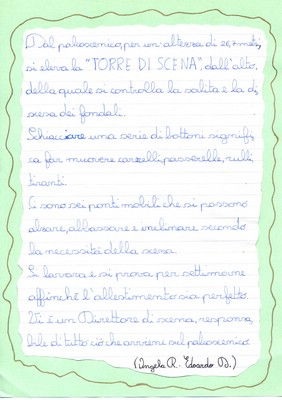 Dal palcoscenico, per un'altezza di 26,7 metri,
si eleva la "TORRE DI SCENA", dall'alto
della quale si controlla la salita e la di
scesa dei fondali.
Schiacciare una serie di bottoni signifi
ca far muovere carrelli, passerelle, rulli,
tiranti.
Ci sono sei ponti mobili che si possono
alzare, abbassare e inclinare secondo
la necessità della scena.
Si lavora e si prova per settimane
affinché l'allestimento sia perfetto.
Vi è un Direttore di scena, responsa
bile di tutto ciò che avviene sul palcoscenico.
(Angela R. - Edoardo D.)